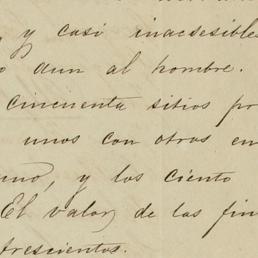 y casi inacsesible
dun al hombre.
cincuenta sitios
unos con otros en
uno, y los ciento
El valor de las fin
trescientos.